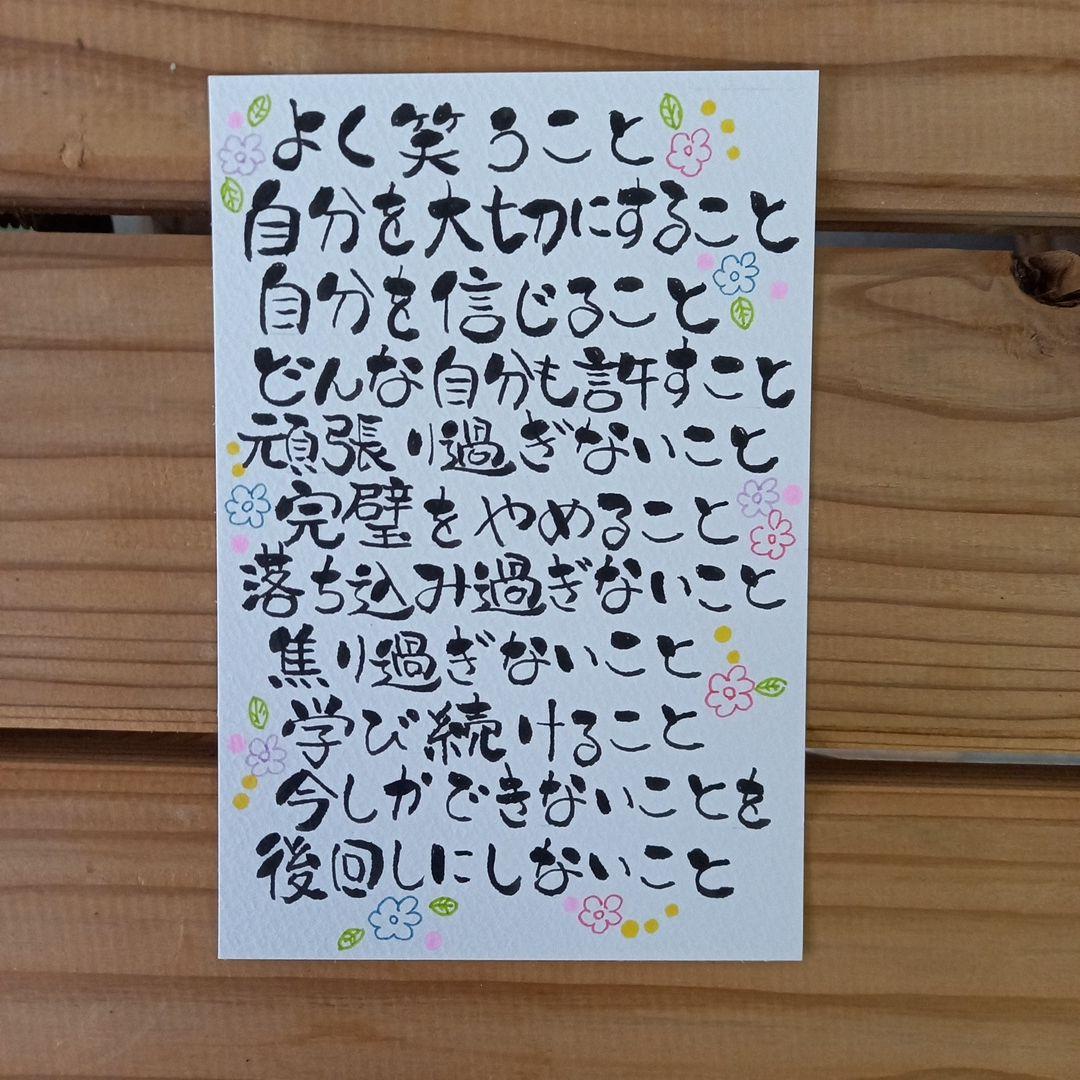 よく笑うこと
自分を大切にすること
自分を信じること
どんな自分も許すこと
頑張り過ぎないこと
完璧をやめること
落ち込み過ぎないこと
焦り過ぎないこと
学び続けること
今しかできないことを
後回しにしないこと